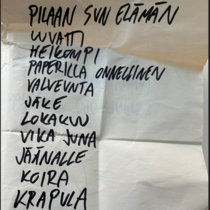 PILAAN SUN ELÄMÄN
LUVATTI
HEIKOMPI
PAPERILLA ONNELLINEN
VALVEUNTA
JAKE
LOKAKUU
VIKA JUNA
JÄÄNALLE
KOIRA
KRAPULA